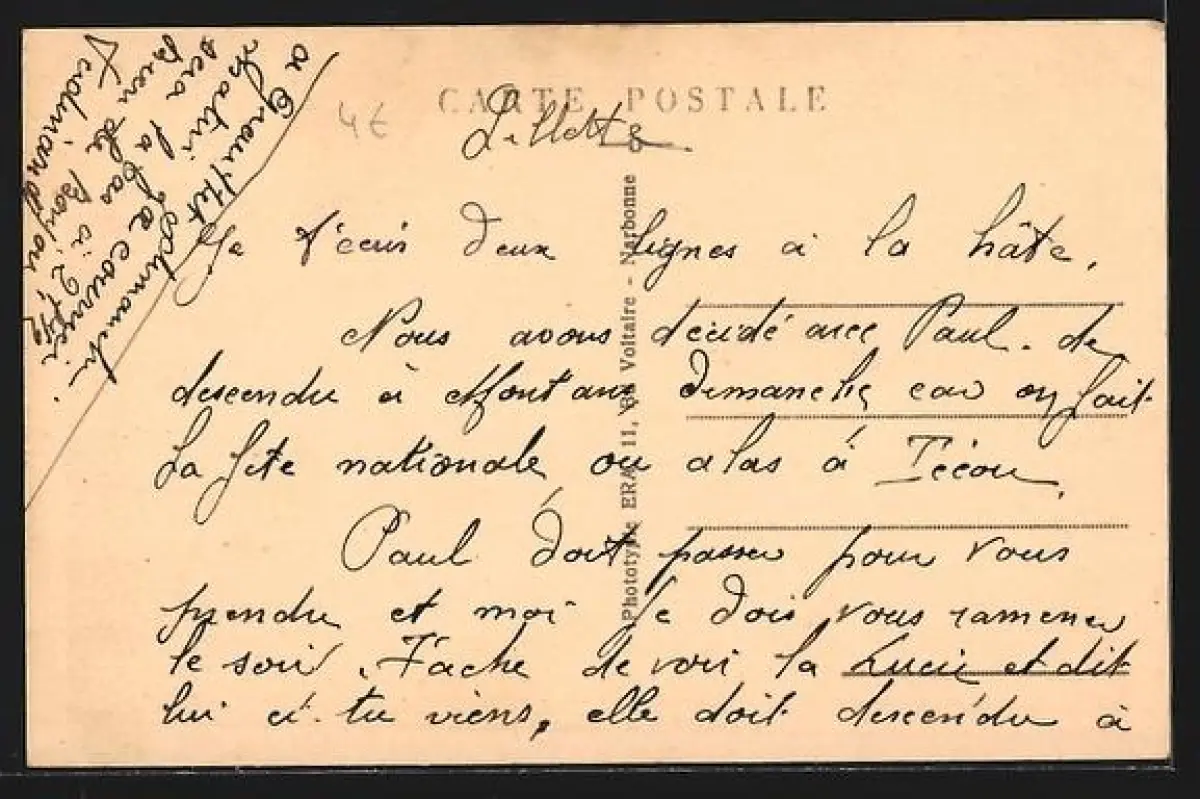 CARTE POSTALE
4€
Je t'écris deux lignes à la hâte,
Nous avons décidé avec Paul. de
descendre à dimanche, car on fait
La fête nationale, ou a las à Técou,
Paul doit passer pour vous
prendre et moi je dois vous ramener
le soir. Tache de voir la Lucie et dit
lui si tu viens, elle doit descendre à
a dimanche
matin ça courrier
sera la bas à 2
bien de
Phototypie ERA 11, Voltaire - Narbonne